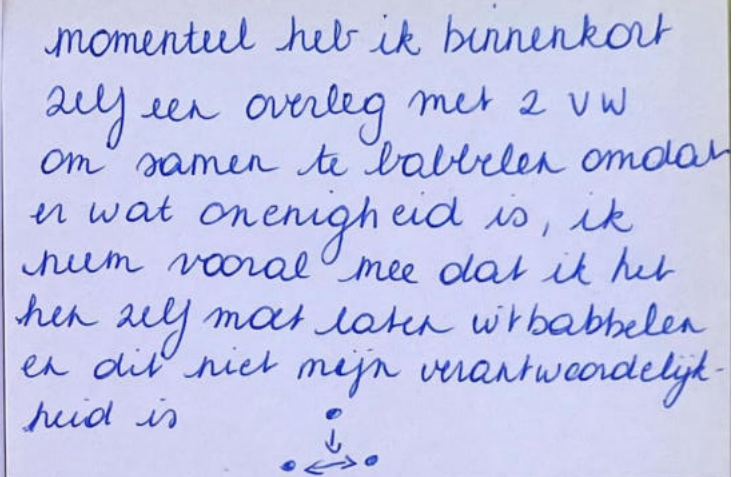 momenteel heb ik binnenkort
zelf een overleg met 2 VW
om samen te babbelen omdat
er wat onenigheid is, ik
neem vooral mee dat ik het
hen zelf moet laten uitbabbelen
en dit niet mijn verantwoordelijk-
heid is